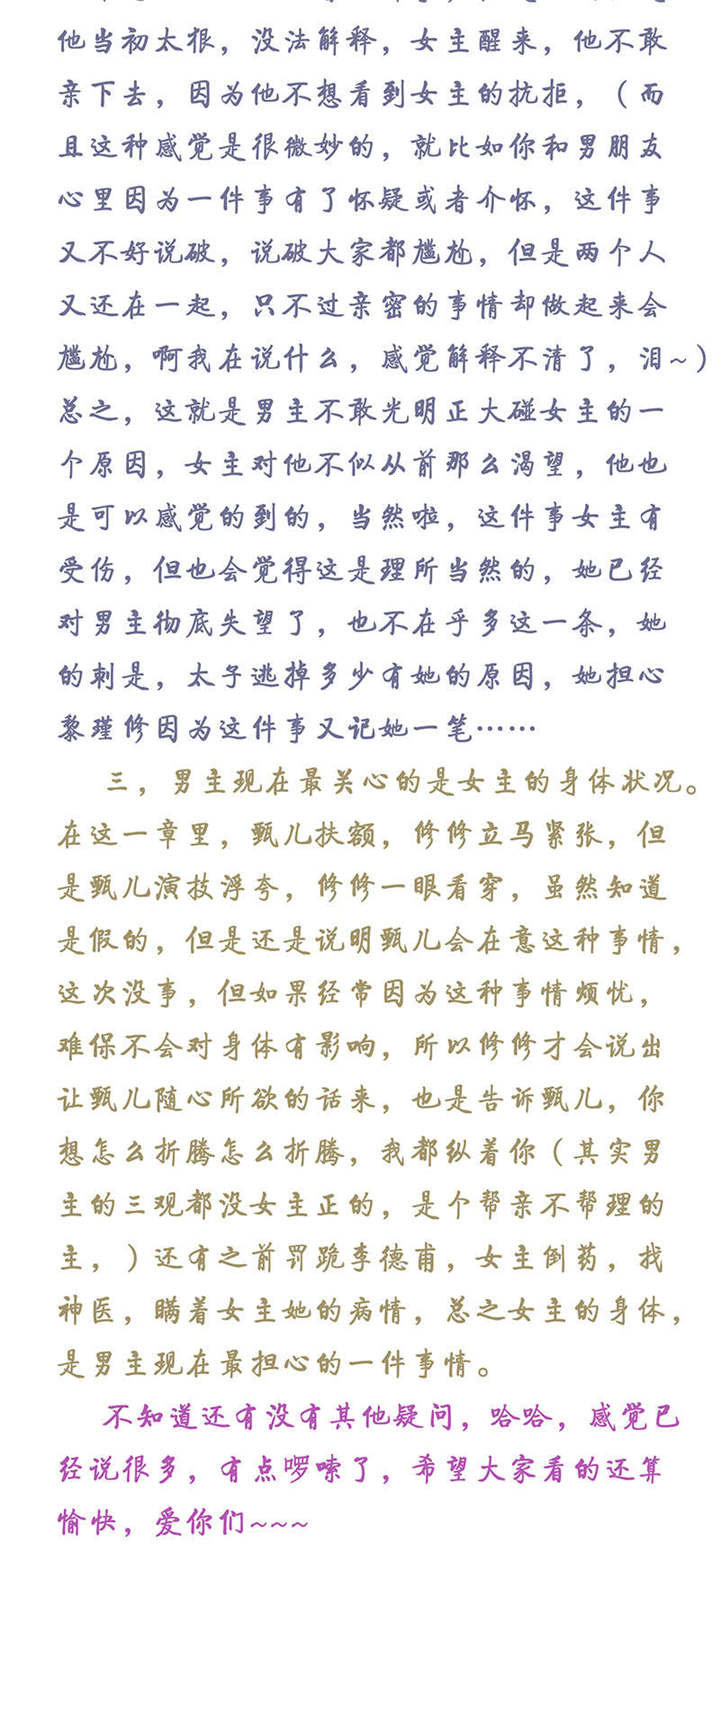 他当初太狠，没法解释，女主醒来，他不敢
亲下去，因为他不想看到女主的抗拒，（而
且这种感觉是很微妙的，就比如你和男朋友
心里因为一件事有了怀疑或者介怀，这件事
又不好说破，说破大家都尴尬，但是两个人
又还在一起，只不过亲密的事情却做起来会
尴尬，啊我在说什么，感觉解释不清了，泪~）
总之，这就是男主不敢光明正大碰女主的一
个原因，女主对他不似从前那么渴望，他也
是可以感觉的到的，当然啦，这件事女主有
受伤，但也会觉得这是理所当然的，她已经
对男主彻底失望了，也不在乎多这一条，她
的刺是，太子逃掉多少有她的原因，她担心
黎瑾修因为这件事又记她一笔……
三，男主现在最关心的是女主的身体状况。
在这一章里，甄儿扶额，修修立马紧张，但
是甄儿演技浮夸，修修一眼看穿，虽然知道
是假的，但是还是说明甄儿会在意这种事情，
这次没事，但如果经常因为这种事情烦忧，
难保不会对身体有影响，所以修修才会说出
让甄儿随心所欲的话来，也是告诉甄儿，你
想怎么折腾怎么折腾，我都纵着你（其实男
主的三观都没女主正的，是个帮亲不帮理的
主，）还有之前罚跪李德甫，女主倒药，找
神医，瞒着女主她的病情，总之女主的身体，
是男主现在最担心的一件事情。
不知道还有没有其他疑问，哈哈，感觉已
经说很多，有点啰嗦了，希望大家看的还算
愉快，爱你们~~~